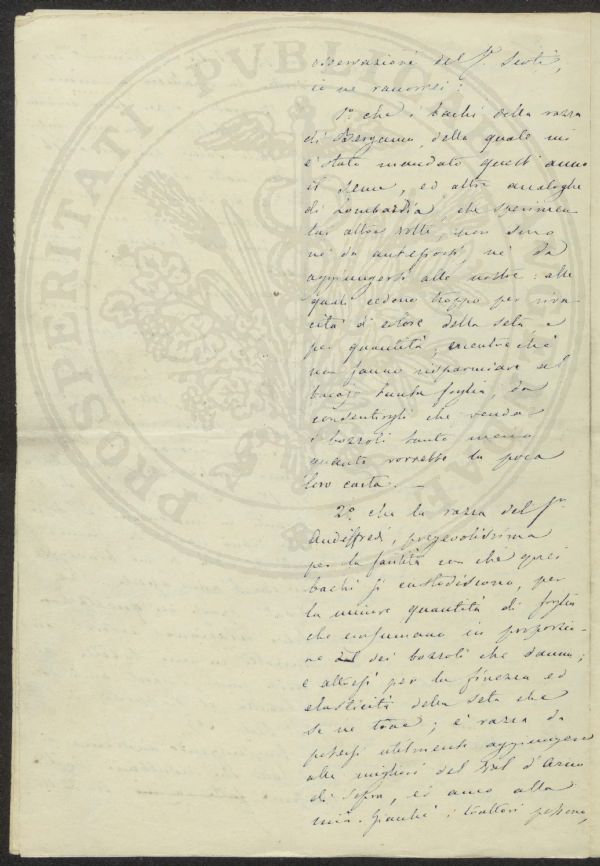 osservazioni del Sr. Scoti,
io ne raccorrei:
1º che i bachi della razza
di Bergamo, della quale mi
è stato mandato quest'anno
il seme, ed altre analoghe
di Lombardia, che sperimen
tai altre volte, non sono
nè da anteporsi, nè da
aggiungersi alle nostre: alle
quali cedono troppo per viva
cità di colore della seta, e
per quantità; mentreche
non fanno risparmiare al
bacajo tanta foglia, da
consentirgli che venda
i bozzoli tanto meno
quanto vorrebbe la poca
loro carta. —
2º che la razza del Sr.
Audiffredi, pregevolissima
per la facilità con che quei
bachi si custodiscono, per
la minore quantità di foglia
che consumano in proporzio-
ne dei bozzoli che danno;
e altresì per la finezza ed
elasticità della seta che
se ne trae; è razza da
potersi utilmente aggiungere
alle migliori del Val d'Arno
di sopra, ed anco alla
mia. Giacchè i trattori possono,
PROSPERITATI PVBLICAE